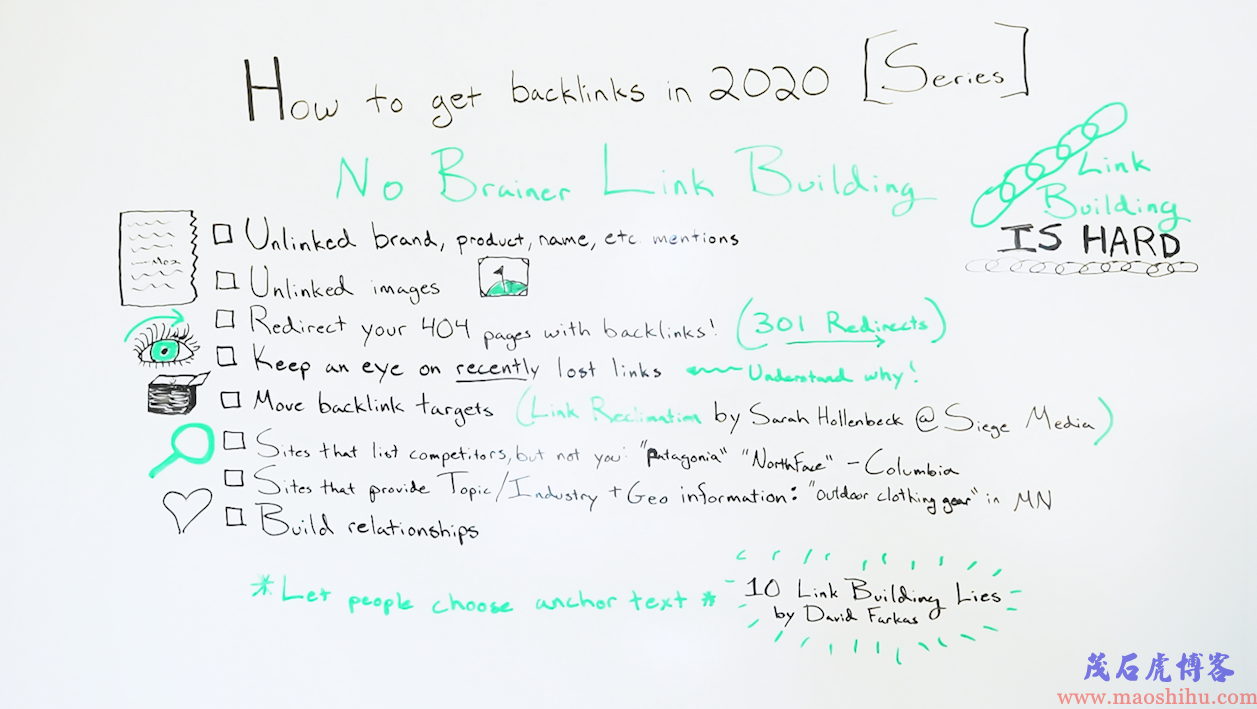 How to get backlinks in 2020 [Series]
No Brainer Link Building
Link
Building
IS HARD
Unlinked brand, product, name, etc. mentions
Moz
Unlinked images
Redirect your 404 pages with backlinks! (301 Redirects)
Keep an eye on recently lost links Understand why!
Move backlink targets (Link Reclimation by Sarah Hollenbeck @ Siege Media)
Sites that list competitors, but not you: "Patagonia" "NorthFace" - Columbia
Sites that provide Topic/Industry + Geo information: "outdoor clothing gear" in MN
Build relationships
*Let people choose anchor text*
10 Link Building Lies
by David Farkas
茂石虎博客
www.maoshihu.com